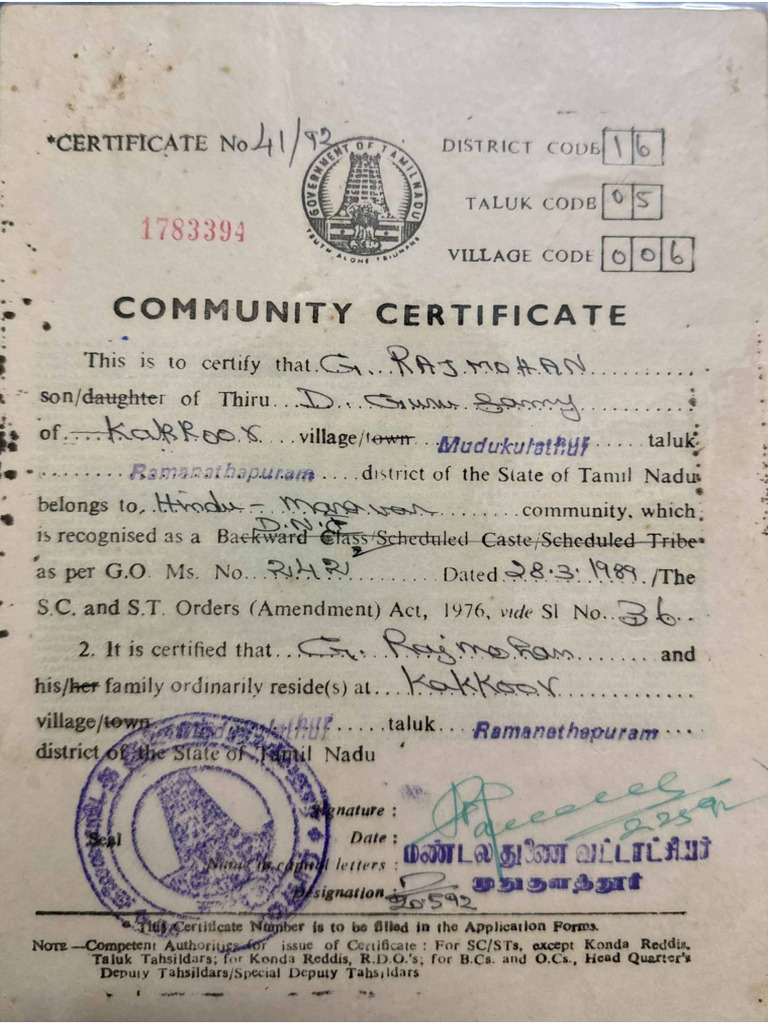 *CERTIFICATE No 41/92
GOVERNMENT OF TAMILNADU
TRUTH ALONE TRIUMPHS
DISTRICT CODE 16
TALUK CODE 05
VILLAGE CODE 006
1783394
COMMUNITY CERTIFICATE
This is to certify that. G. RAJMOHAN
son/daughter of Thiru D. Guru Samy
of Kakkoor village/town Mudukulathur taluk
Ramanathapuram district of the State of Tamil Nadu
belongs to Hindu - Maravar community, which
D.N.C
is recognised as a Backward Class/Scheduled Caste/Scheduled Tribe
as per G.O. Ms. No. 242 Dated 28.3.1989 /The
S.C. and S.T. Orders (Amendment) Act, 1976, vide Sl No. 36
2. It is certified that G. Rajmohan and
his/her family ordinarily reside(s) at Kakkoor
village/town Mudukulathur taluk Ramanathapuram
district of the State of Tamil Nadu
Signature :
Seal
Date :
Name in capital letters :
மண்டல துணை வட்டாட்சியர்
முதுகுளத்தூர்
Designation :
20592
* This Certificate Number is to be filled in the Application Forms.
NOTE—Competent Authorities for issue of Certificate : For SC/STs, except Konda Reddis,
Taluk Tahsildars; for Konda Reddis, R.D.O.'s; for B.Cs. and O.Cs., Head Quarter's
Deputy Tahsildars/Special Deputy Tahsildars